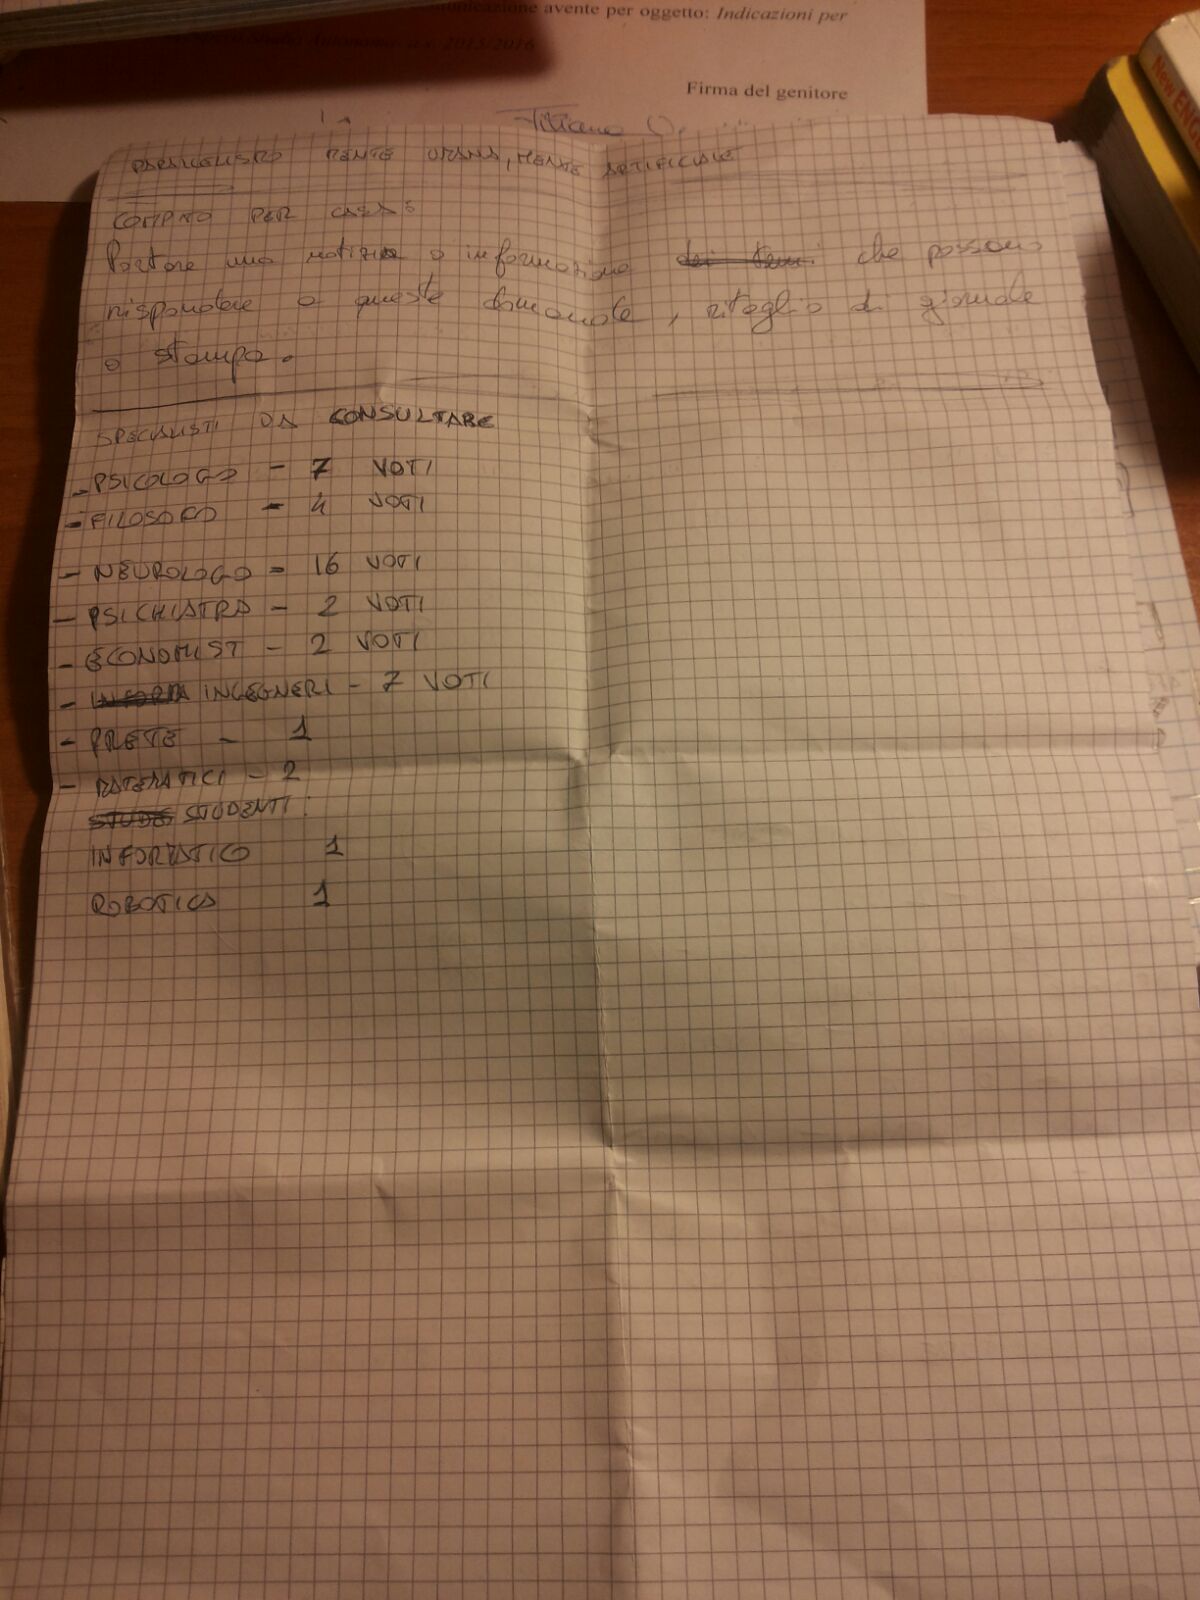 comunicazione avente per oggetto: Indicazioni per
Studio Autonomo a.s. 2015/2016
Firma del genitore
Tiziano
New ENG
MENTE UMANA, MENTE ARTIFICIALE
COMPITO PER CASA:
Portare una notizia o informazione che possono
rispondere a queste domande, ritaglio di giornale
o stampa.
SPECIALISTI DA CONSULTARE
- PSICOLOGO - 7 VOTI
- FILOSOFO - 4 VOTI
- NEUROLOGO - 16 VOTI
- PSICHIATRA - 2 VOTI
- ECONOMIST - 2 VOTI
- INGEGNERI - 7 VOTI
- PRETE - 1
- MATEMATICI - 2
STUDENTI:
INFORMATICO 1
ROBOTICA 1